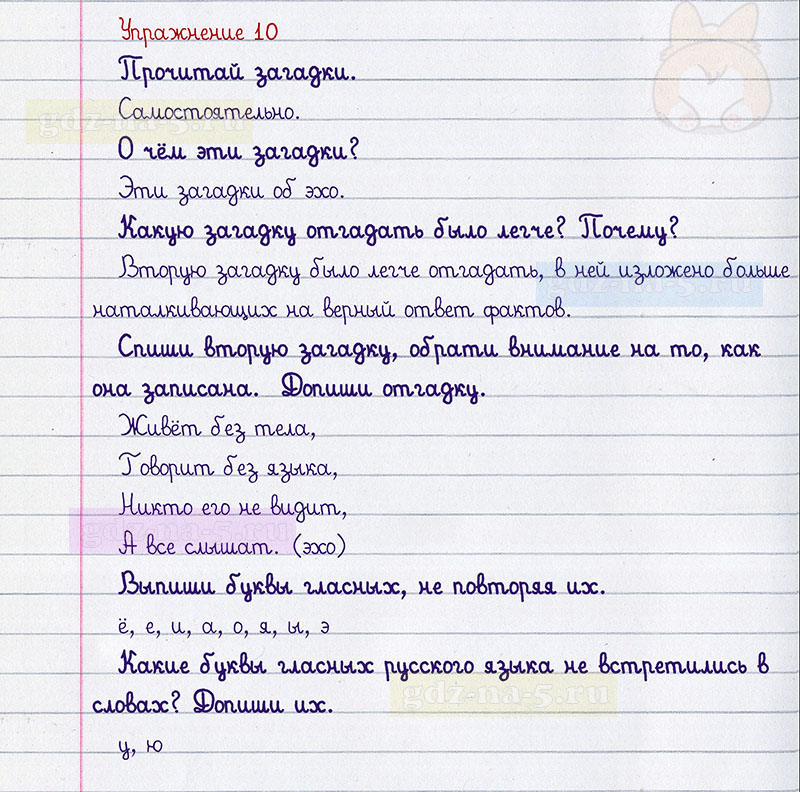 Упражнение 10
Прочитай загадки.
Самостоятельно.
gdz-na-5.ru
О чём эти загадки?
Эти загадки об эхо.
Какую загадку отгадать было легче? Почему?
Вторую загадку было легче отгадать, в ней изложено больше
gdz-na-5.ru
наталкивающих на верный ответ фактов.
Спиши вторую загадку, обрати внимание на то, как
она записана. Допиши отгадку.
Живёт без тела,
Говорит без языка,
Никто его не видит,
gdz-na-5.ru
А все слышат. (эхо)
Выпиши буквы гласных, не повторяя их.
ё, е, и, а, о, я, ы, э
Какие буквы гласных русского языка не встретились в
gdz-na-5.ru
словах? Допиши их.
у, ю